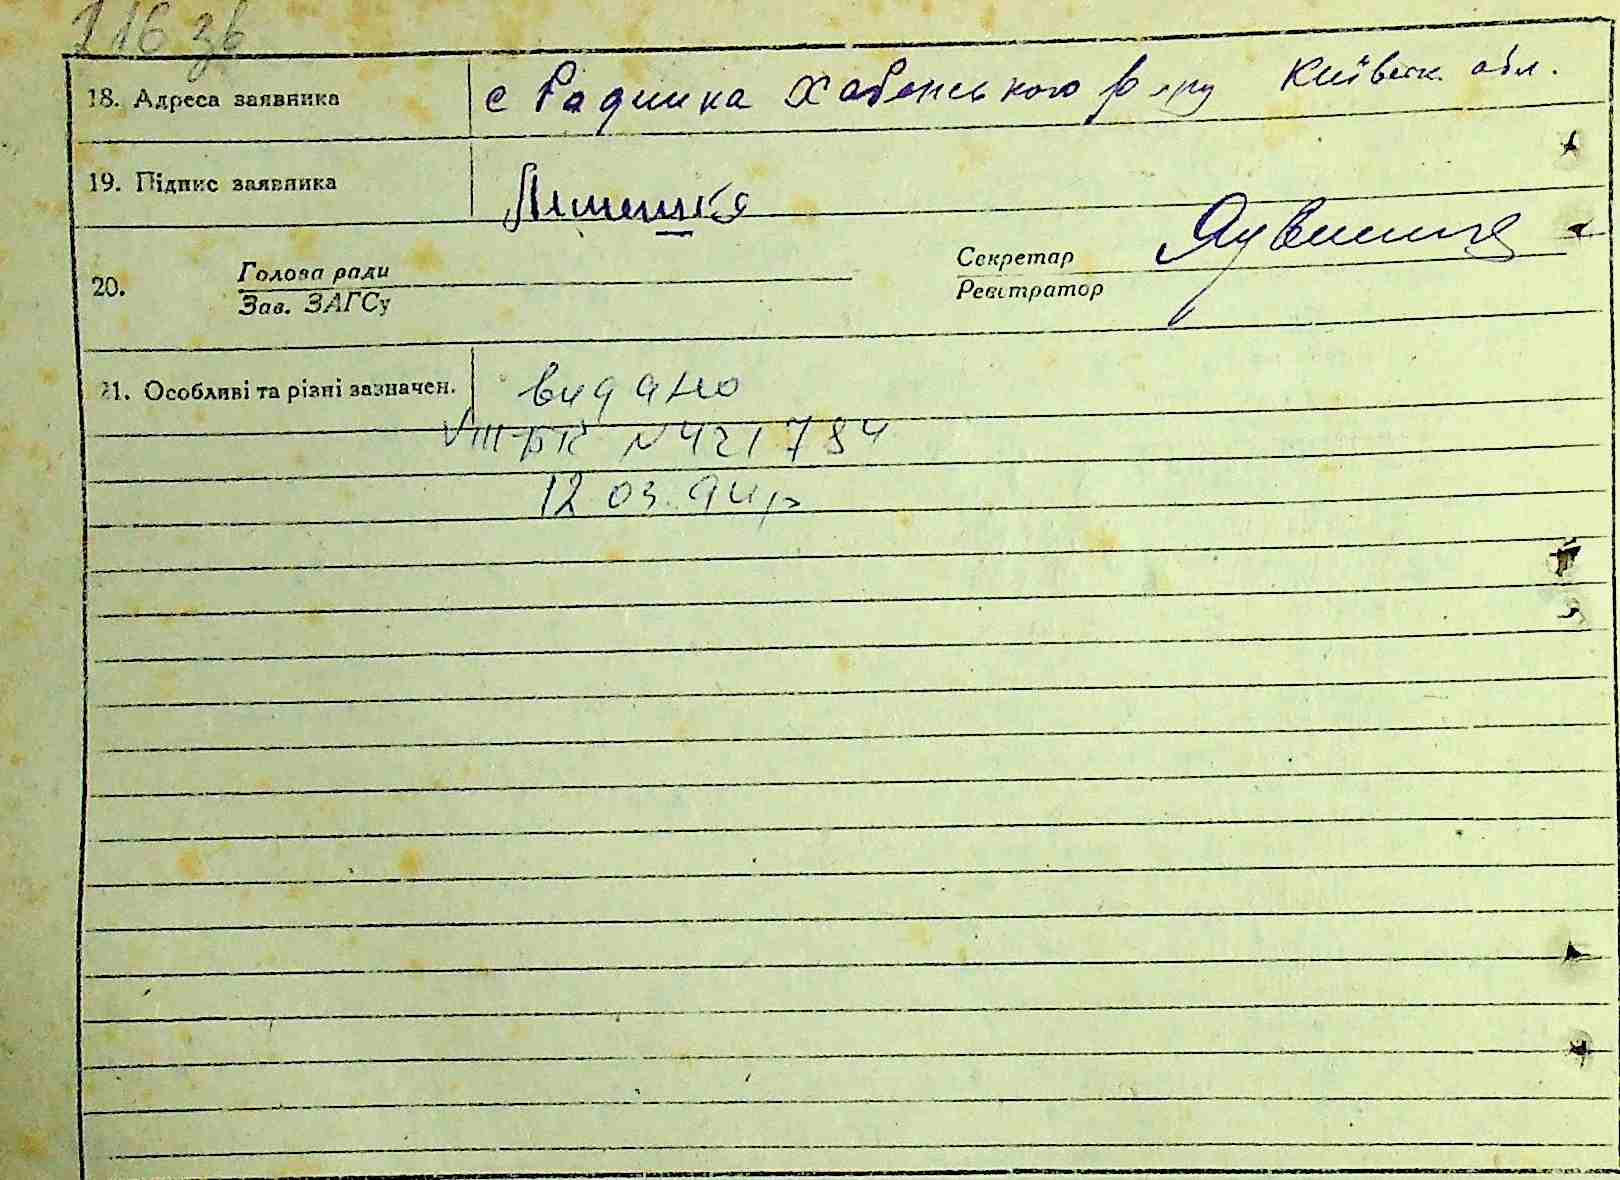 116 зв
18. Адреса заявника с Радинка Хабенського р-ну Київськ. обл.
19. Підпис заявника
20. Голова ради Секретар
Зав. ЗАГСу Реєстратор
21. Особливі та різні зазначен. видано
VIII-БК N 421784
12 03. 94р